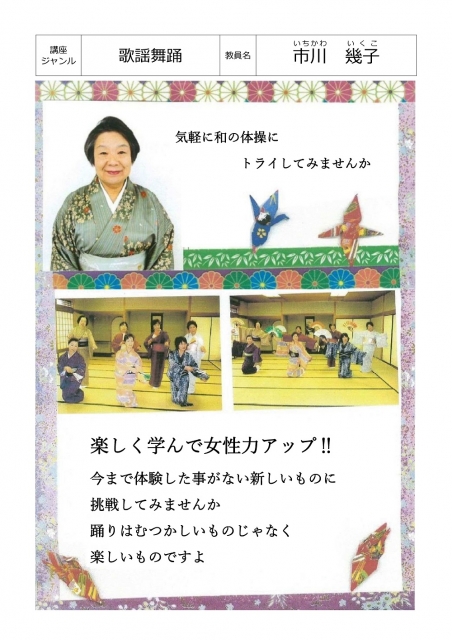 講座
ジャンル
歌謡舞踊
教員名
いちかわ いくこ
市川 幾子
気軽に和の体操に
トライしてみませんか
楽しく学んで女性力アップ!!
今まで体験した事がない新しいものに
挑戦してみませんか
踊りはむつかしいものじゃなく
楽しいものですよ